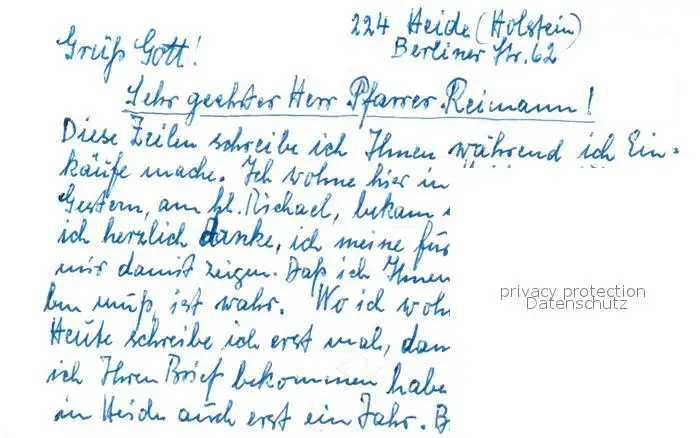 224 Heide (Holstein)
Berliner Str. 62
Grüß Gott!
Sehr geehrter Herr Pfarrer Reimann!
Diese Zeilen schreibe ich Ihnen während ich Ein=
käufe mache. Ich wohne hier in
Gestern, am hl. Michael, bekam
ich herzlich danke, ich meine für
mir damit zeigen. Daß ich Ihnen
ben muß, ist wahr. Wo ich woh
Heute schreibe ich erst mal, dan
ich Ihren Brief bekommen habe
in Heide auch erst ein Jahr. B
privacy protection
Datenschutz